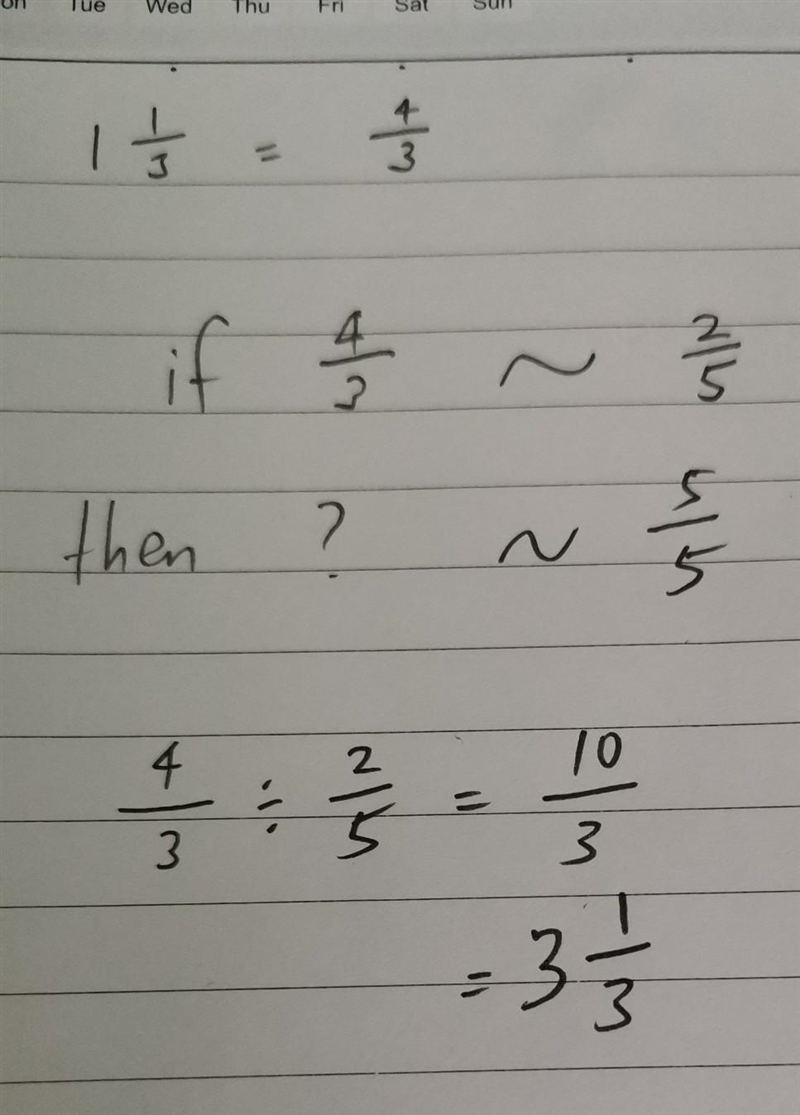 on Tue Wed Thu Fri Sat Sun
1 1/3 = 4/3
if 4/3 ~ 2/5
then ? ~ 5/5
4/3 ÷ 2/5 = 10/3
= 3 1/3